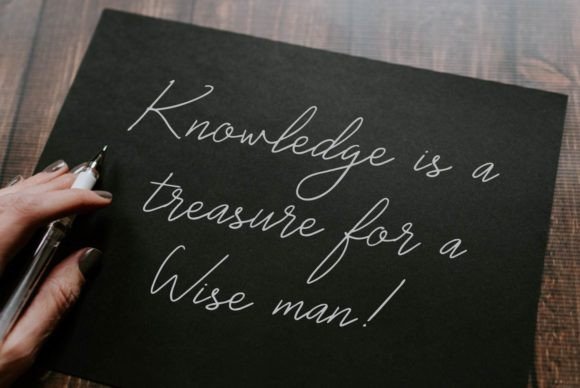 Knowledge is a
treasure for a
Wise man!